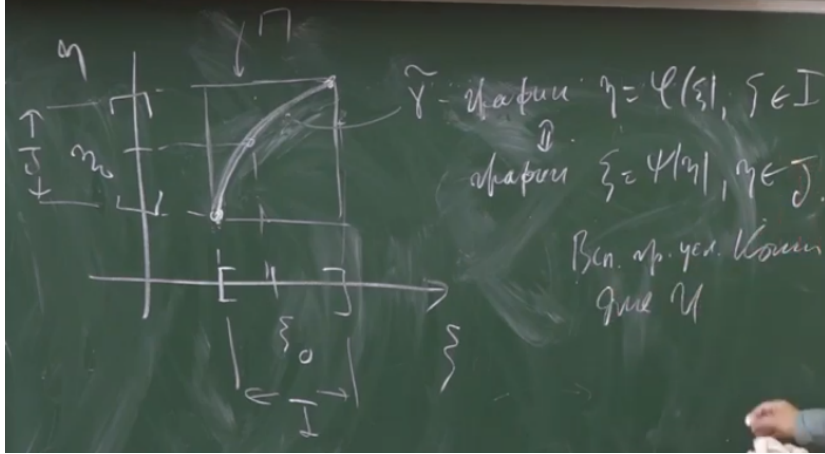 η
П
J
η₀
ξ₀
I
ξ
γ̃ - график η = φ(ξ), ξ ∈ I
⇕
график ξ = ψ(η), η ∈ J.
Всп. пр. усл. Коши
для U